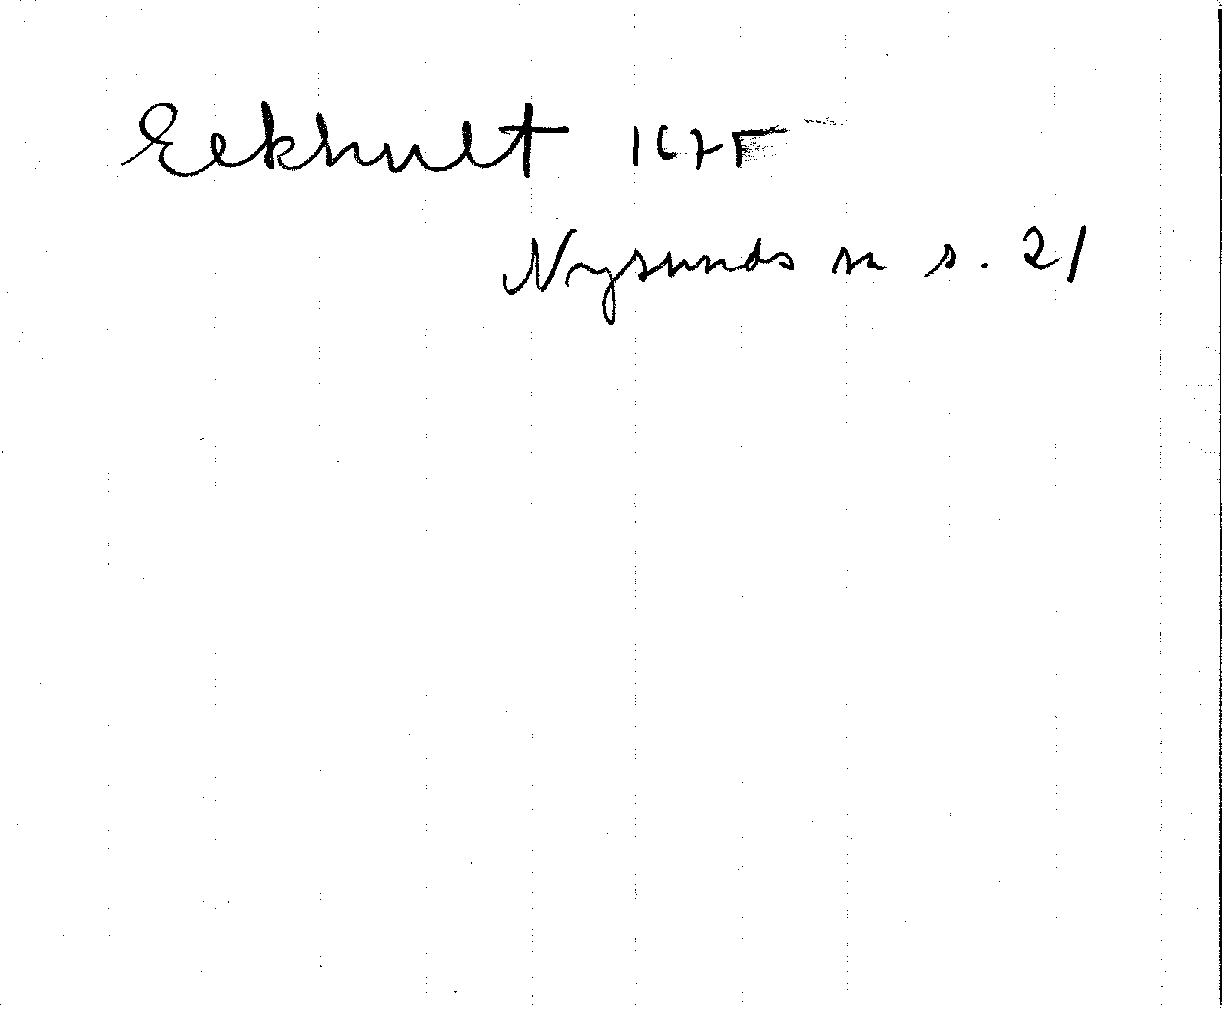 Eekhult 1675
Nysunds sn s. 21